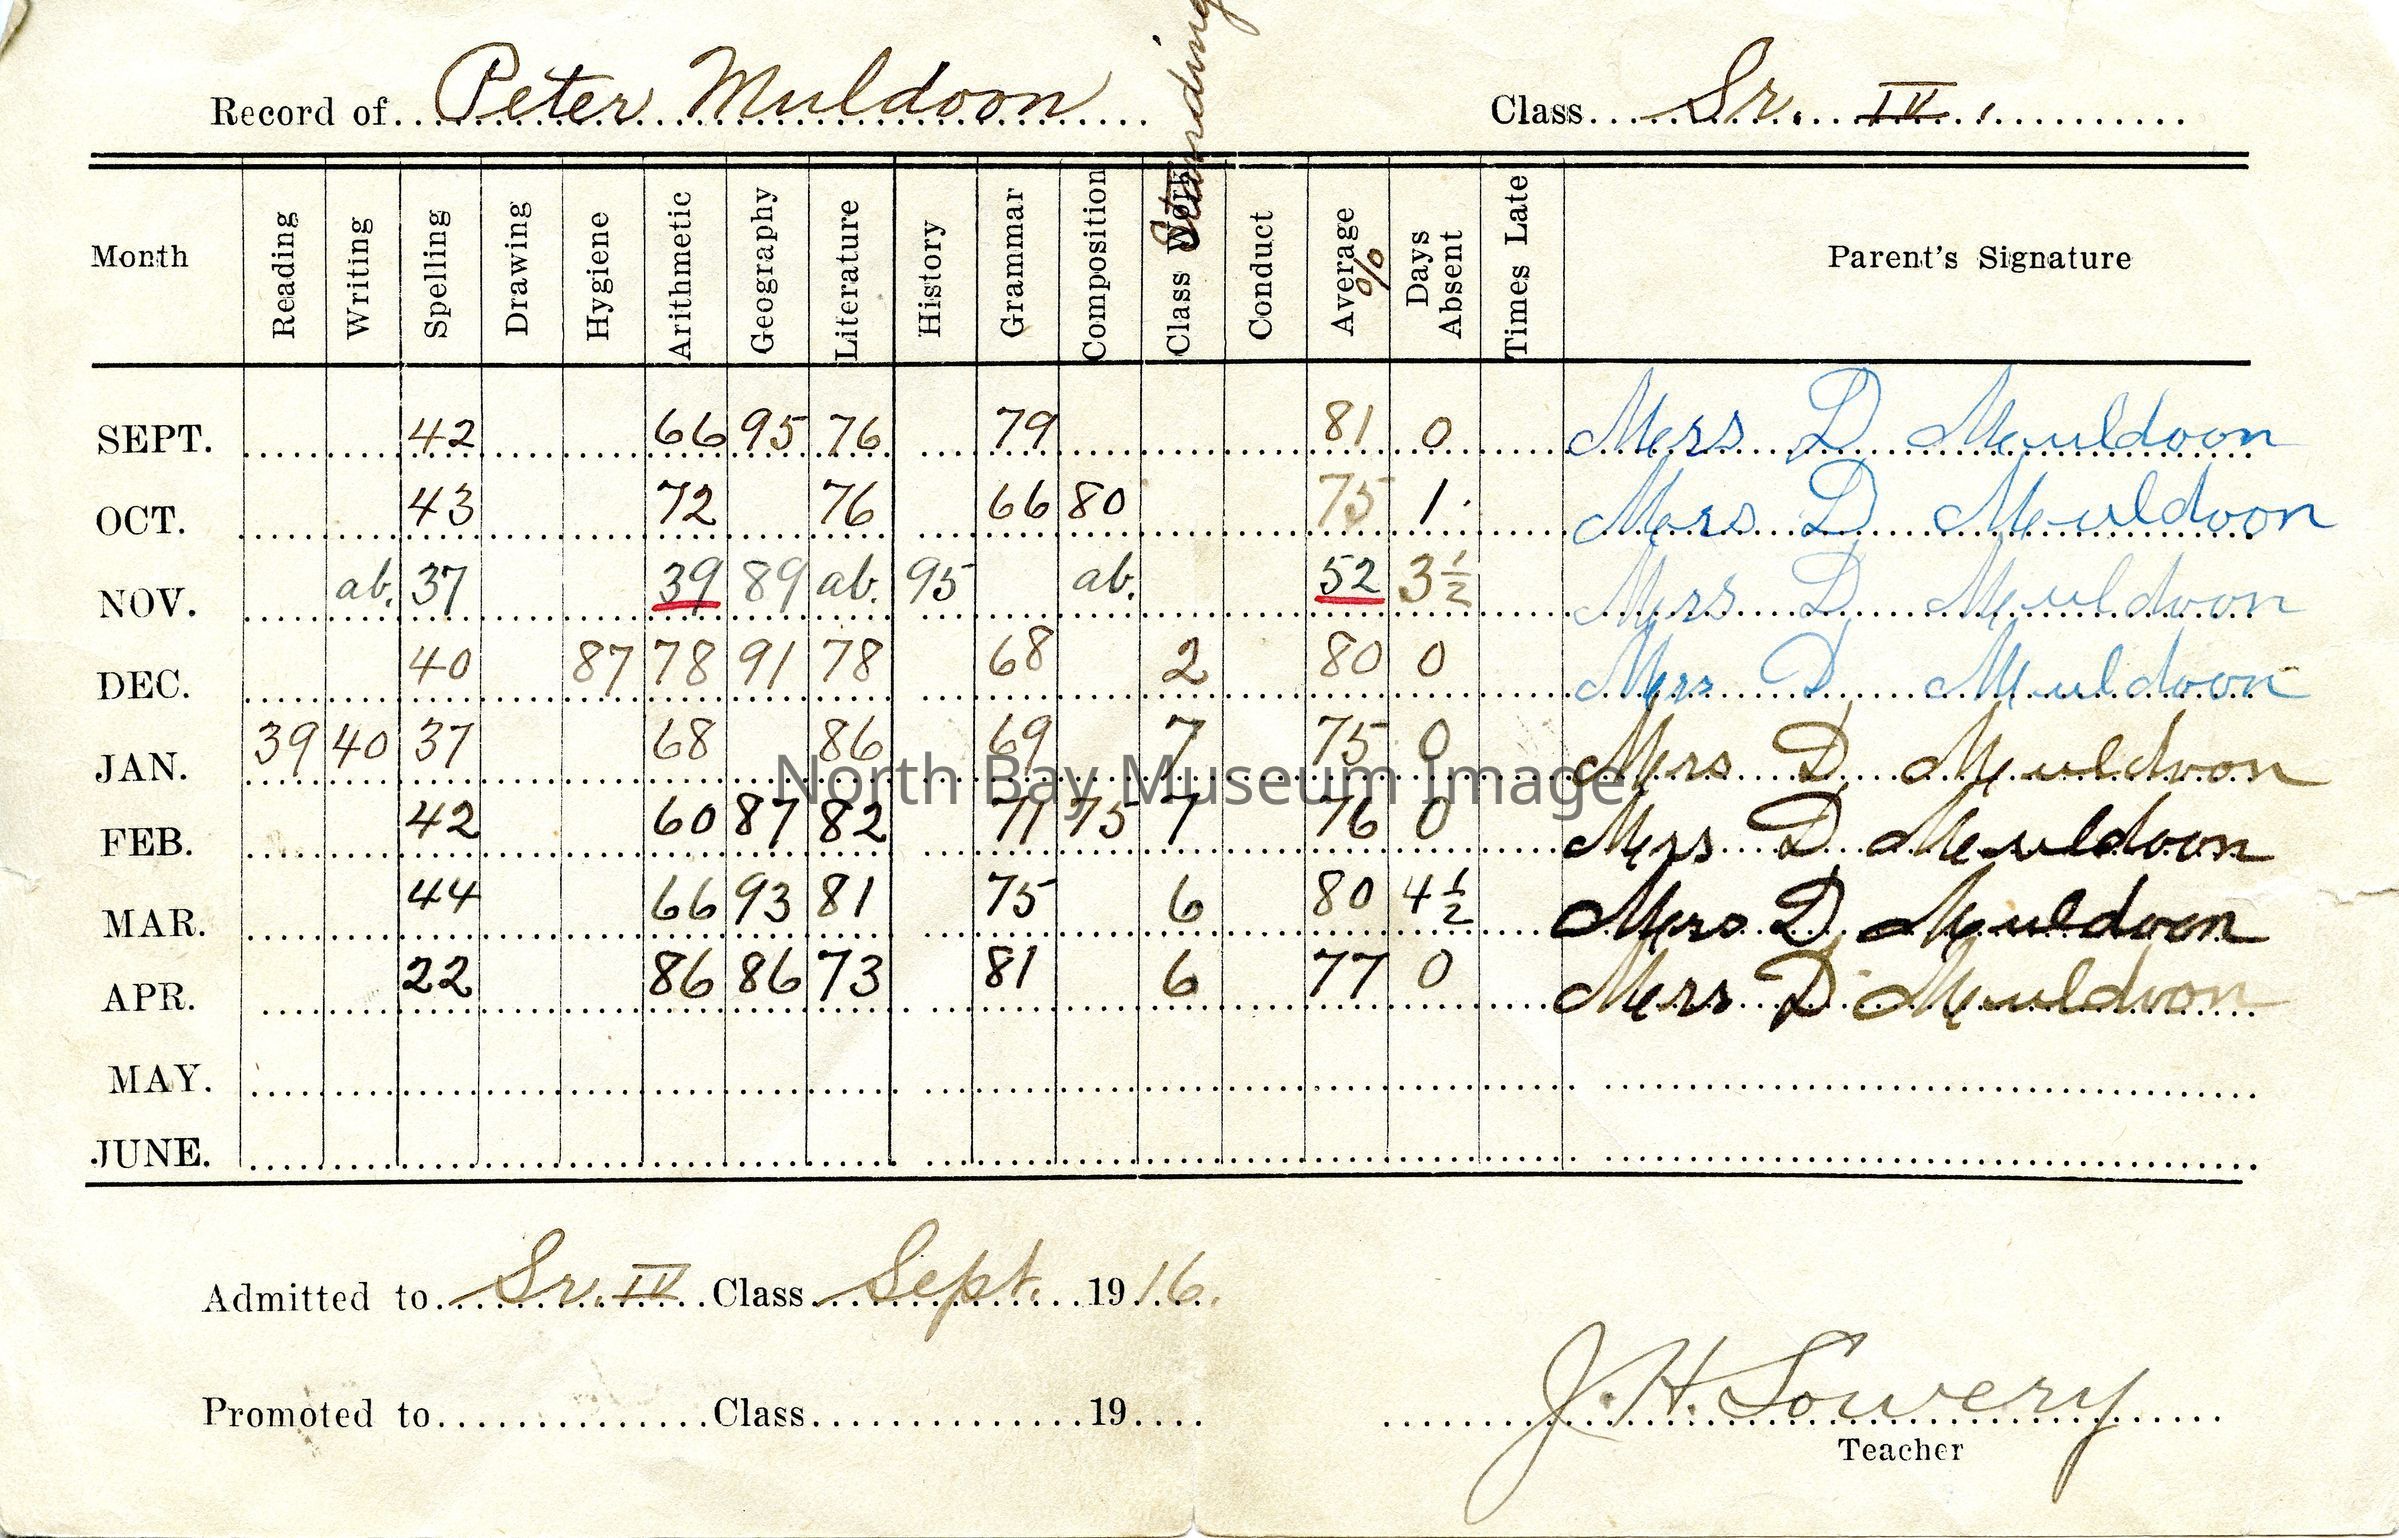 Standing
Record of Peter Muldoon Class Sr. IV.
Month Reading Writing Spelling Drawing Hygiene Arithmetic Geography Literature History Grammar Composition Class Work Conduct Average % Days Absent Times Late Parent's Signature
SEPT. 42 66 95 76 79 81 0 Mrs D Muldoon
OCT. 43 72 76 66 80 75 1 Mrs D Muldoon
NOV. ab. 37 39 89 ab. 95 ab. 52 3 1/2 Mrs D Muldoon
DEC. 40 87 78 91 78 68 2 80 0 Mrs D Muldoon
JAN. 39 40 37 68 86 69 7 75 0 Mrs D Muldoon
North Bay Museum Image
FEB. 42 60 87 82 71 75 7 76 0 Mrs D Muldoon
MAR. 44 66 93 81 75 6 80 4 1/2 Mrs D Muldoon
APR. 22 86 86 73 81 6 77 0 Mrs D Muldoon
MAY.
JUNE.
Admitted to Sr. IV Class Sept. 1916.
Promoted to Class 19
J. H. Lowery
Teacher